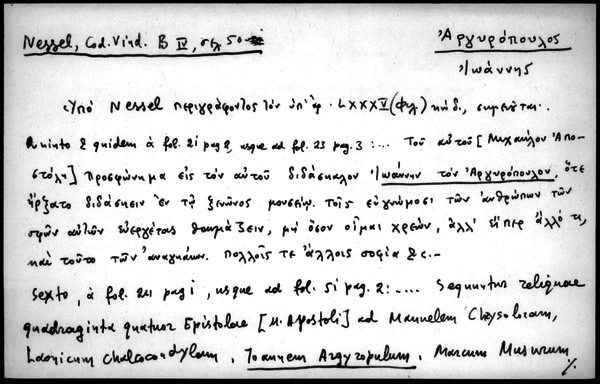 Nessel, Cod. Vind. B IV, σελ. 50
Ἀργυρόπουλος
Ἰωάννης
Ὑπὸ Nessel περιγράφοντος τὸν ὑπ' ἀρ. LXXXV (φιλ) κώδ., σημειοῦται..
Quinto & quidem à fol. 21 pag 2, usque ad fol. 23 pag. 3 :... Τοῦ αὐτοῦ [Μιχαήλου Ἀπο-
στόλη] προσφώνημα εἰς τὸν αὐτοῦ διδάσκαλον Ἰωάννην τὸν Ἀργυρόπουλον, ὅτε
ἤρξατο διδάσκειν ἐν τῷ ξενῶνος μουσείῳ. Τοῖς εὐγνώμοσι τῶν ἀνθρώπων τῶν
σφῶν αὐτῶν εὐεργέτας θαυμάζειν, μὴ ὅσον οἶμαι χρεών, ἀλλ' εἴπερ ἄλλό τι,
καὶ τοῦτο τῶν ἀναγκαίων. Πολλοῖς τε ἄλλοις σοφία &c.-
Sexto, à fol. 24 pag 1, usque ad fol. 51 pag. 2 :.... Sequuntur reliquae
quadraginta quatuor Epistolae [M. Apostoli] ad Manuelem Chrysoloram,
Laonicum Chalcocondylam, Ioannem Argyropulum, Marcum Musurum
%